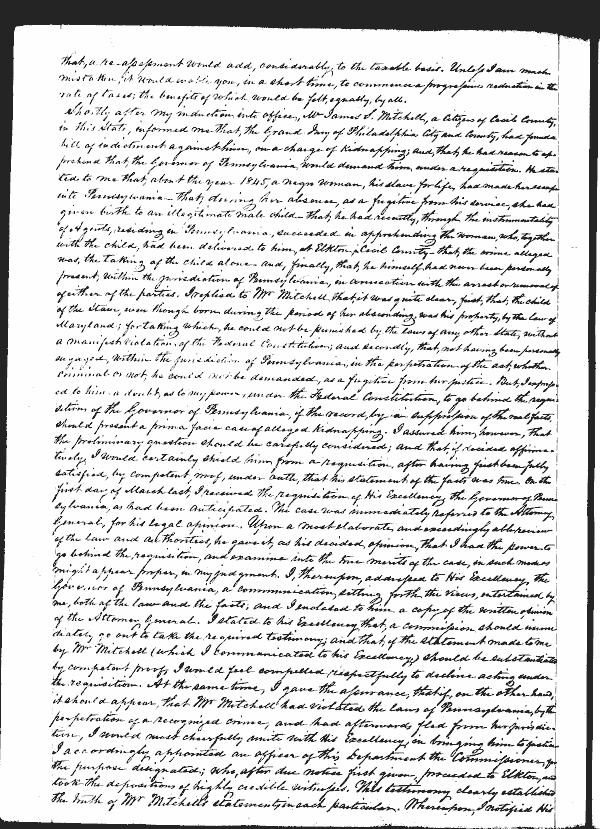 that, a re-assessment would add, considerably, to the taxable basis. Unless I am much
mistaken, it would enable you, in a short time, to commence a progressive reduction in the
rate of taxes; the benefits of which would be felt, equally, by all.
Shortly after my induction into office, Mr James S. Mitchell, a citizen of Cecil County,
in this State, informed me that, the Grand Jury of Philadelphia City and County, had found a
bill of indictment against him, on a charge of Kidnapping; and, that, he had reason to ap-
prehend that the Governor of Pennsylvania, would demand him, under a requisition. He sta-
ted to me that, about the year 1845, a negro woman, his slave for life, had made her escape
into Pennsylvania — that, during her absence, as a fugitive from his service, she had
given birth to an illegitimate male child — that, he had recently, through the instrumentality
of Agents, residing in Pennsylvania, succeeded in apprehending the woman, who, together
with the child, had been delivered to him, at Elkton, Cecil County — that, the crime alleged
was, the taking of the child alone — and, finally, that, he himself had never been personally
present, within the jurisdiction of Pennsylvania, in connection with the arrest or removal of
either of the parties. I replied to Mr Mitchell that it was quite clear, first, that, the child
of the Slave, even though born during the period of her absconding, was his property, by the Law of
Maryland; for taking which, he could not be punished by the laws of any other State, without
a manifest violation, of the Federal Constitution; and secondly, that, not having been personally
engaged, within the jurisdiction of Pennsylvania, in the perpetration of the act, whether
criminal or not, he could not be demanded, as a fugitive from her justice. But, I express-
ed to him a doubt, as to my power, under the Federal Constitution, to go behind the requi-
sition of the Governor of Pennsylvania, if the record, by a suppression of the real facts,
should present a prima facie case of alleged Kidnapping. I assured him, however, that
the preliminary question should be carefully considered; and that, if decided affirma-
tively, I would certainly shield him from a requisition, after having first been fully
satisfied, by competent proof, under oath, that his statement of the facts was true. On the
first day of March last, I received the requisition of His Excellency, the Governor of Penn-
sylvania, as had been anticipated. The case was immediately referred to the Attorney
General, for his legal opinion. Upon a most elaborate, and exceedingly able review
of the law and authorities, he gave it, as his decided, opinion, that I had the power to
go behind the requisition, and examine into the true merits of the case, in such mode as
might appear proper, in my judgment. I, thereupon, addressed to His Excellency, the
Governor of Pennsylvania, a communication, setting forth the views, entertained by
me, both of the law and the facts; and I enclosed to him a copy of the written opinion
of the Attorney General. I stated to his Excellency that, a commission should imme-
diately, go out to take the required testimony; and that, if the statement made to me
by Mr Mitchell (which I communicated to his Excellency,) should be substantiated
by competent proof, I would feel compelled, respectfully, to decline acting under
the requisition. At the same time, I gave the assurance, that if, on the other hand,
it should appear, that Mr Mitchell had violated the laws of Pennsylvania, by the
perpetration of a recognized crime, and had afterwards fled from her jurisdic-
tion, I would most cheerfully unite with his Excellency, in bringing him to justice.
I accordingly, appointed an officer of this Department the Commissioner, for
the purpose designated; who, after due notice first given, proceeded to Elkton, and
took the depositions of highly credible witnesses. This testimony clearly established
the truth of Mr Mitchell's statement, in each particular. Whereupon, I notified His